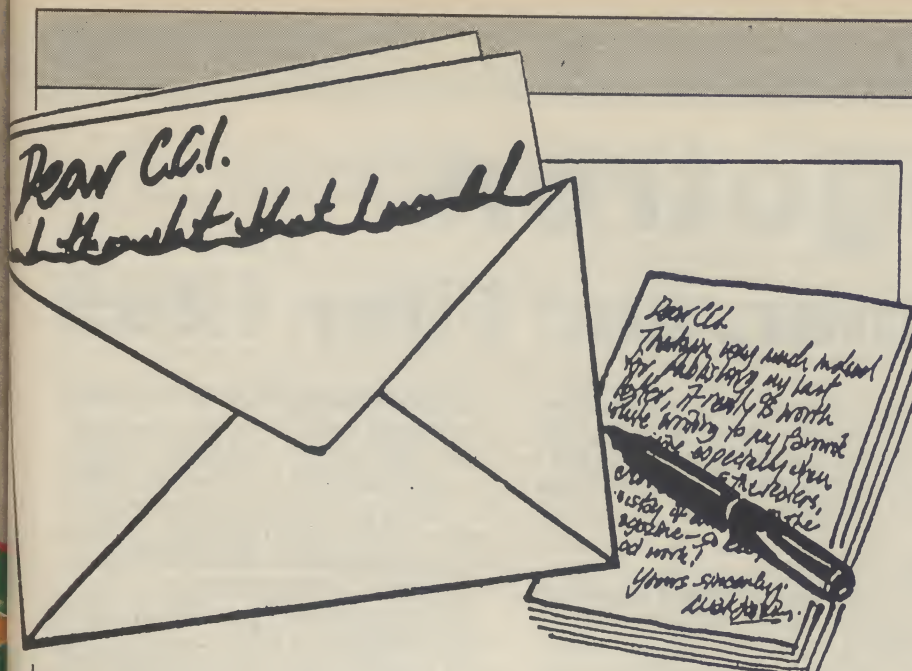 Dear C.C.I.
I thought that I would
Dear CCI.
Thankyou very much indeed
for publishing my last
letter, it really is worth
while writing to my favourite
especially when
the
work!
Yours sincerely.